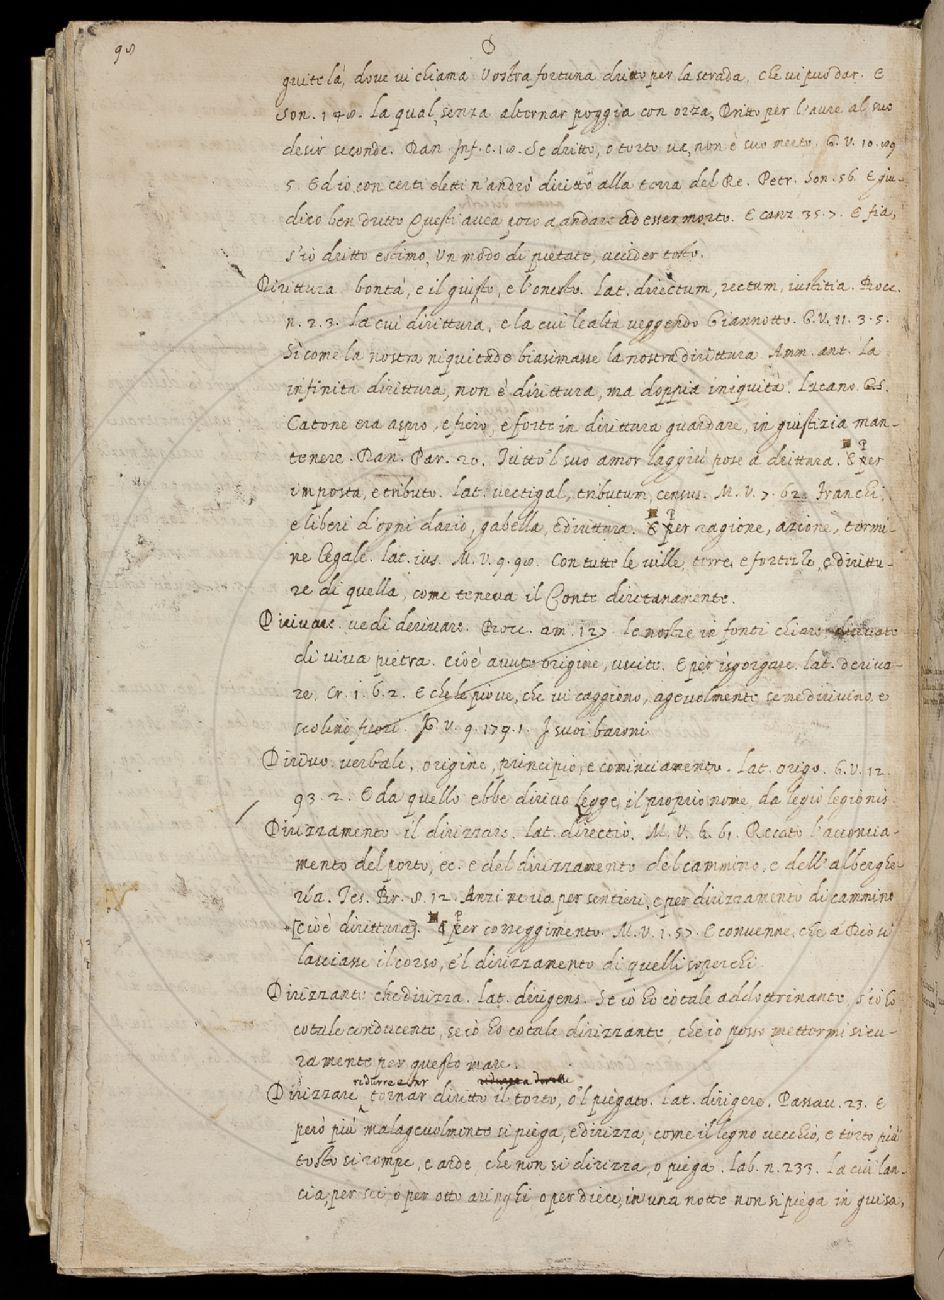 98
D
guite là, dove vi chiama Vostra fortuna dritto per la strada, che vi può dar. E
Son. 148. La qual, senza alternar poggia con orza, Dritto per l'aure al suo
desir seconde. Dan. Inf. c. 18. Se dritto, o torto va, non è suo merto. G. V. 10. 89
5. Ed io con certi eletti n'andrò diritto alla terra del Re. Petr. Son. 56. E giu-
dico ben dritto Questi avea poco a andare ad esser morto. E canz. 35. 7. E fia,
s'io dritto estimo, Un modo di pietate, uccider tosto.
Dirittura. bontà, e il giusto, e l'onesto. Lat. directum, rectum, iustitia. Bocc.
n. 2. 3. La cui dirittura, e la cui lealtà veggendo Giannotto. G. V. 11. 3. 5.
Sì come la nostra niquitade biasimasse la nostra dirittura. Amm. ant. La
infinita dirittura, non è dirittura, ma doppia iniquità. Lucano. 65.
Catone era aspro, e fiero, e forte in dirittura guardare, in giustizia man-
tenere. Dan. Par. 20. Tutto 'l suo amor laggiù pose a drittura. E per
imposta, e tributo. Lat. vectigal, tributum, census. M. V. 7. 62. Franchi,
e liberi d'ogni dazio, gabella, e dirittura. E per ragione, azione, termi-
ne legale. Lat. ius. M. V. 9. 98. Con tutte le ville, terre, e fortezze, e dirittu-
re di quella, come teneva il Conte diretanamente.
Dirivare. vedi derivare. Bocc. am. 127. Le nostre in fonti chiare dirivate
di viva pietra. cioè avuto origine, uscite. E per isgorgare. Lat. deriva-
re. Cr. 1. 6. 2. E che le piove, che vi caggiono, agevolmente se ne dirivino, e
scolino fuori. G. V. 9. 179. 1. I suoi baroni
Dirivo. verbale, origine, principio, e cominciamento. Lat. origo. G. V. 12.
93. 2. E da quello ebbe dirivo Legge, il proprio nome, da legio legionis.
Dirizzamento. il dirizzare. Lat. directio. M. V. 6. 61. Recato l'acconcia-
mento del porto, ec. e del dirizzamento del cammino, e dell'alberghe-
ria. Tes. Br. 8. 12. Anzi ne va per sentieri, e per dirizzamento di cammino
[cioè dirittura]. E per correggimento. M. V. 1. 57. E convenne, che a Dio si
lasciasse il corso, e 'l dirizzamento di quelli soperchi.
Dirizzante. che dirizza. Lat. dirigens. Se io ho cotale addottrinante, s'io ho
cotale conducente, se io ho cotale dirizzante, che io posso mettermi sicu-
ramente per questo mare.
ridurre e far
Dirizzare. tornar diritto il torto, o 'l piegato. Lat. dirigere. Passav. 23. E
però più malagevolmente si piega, e dirizza, come il legno vecchio, e torto più
tosto si rompe, e arde, che non si dirizza, o piega. Lab. n. 233. La cui lan-
cia, per sei, o per otto aringhi o per diece, in una notte non si piega in guisa,